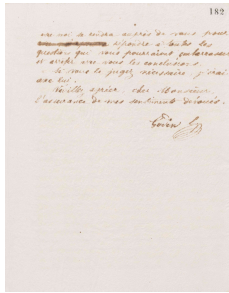 182
moi se rendra auprès de vous pour
répondre à toutes les
questions que vous pourraient embarrasser
et avec vous les conclusions.
Si vous le jugez nécessaire, j'irai
avec lui.
Veuillez agréer, cher Monsieur,
l'assurance de mes sentiments dévoués.
Godin